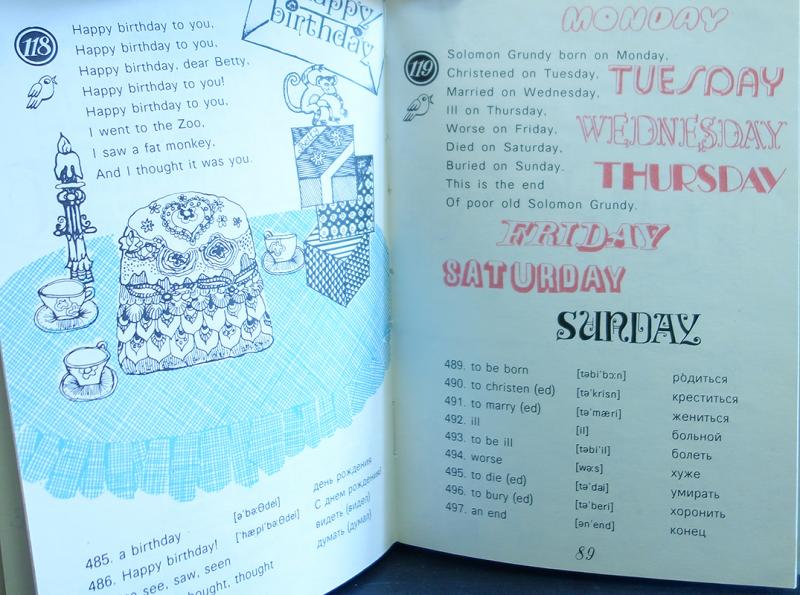 118
happy
birthday
Happy birthday to you,
Happy birthday to you,
Happy birthday, dear Betty,
Happy birthday to you!
Happy birthday to you,
I went to the Zoo,
I saw a fat monkey,
And I thought it was you.
485. a birthday [ə'bə:θdei] день рождения
486. Happy birthday! ['hæpi'bə:θdei] С днем рождения!
see, saw, seen видеть (видел)
thought, thought думать (думал)
MONDAY
119
Solomon Grundy born on Monday,
Christened on Tuesday,
Married on Wednesday,
Ill on Thursday,
Worse on Friday,
Died on Saturday,
Buried on Sunday.
This is the end
Of poor old Solomon Grundy.
TUESDAY
WEDNESDAY
THURSDAY
FRIDAY
SATURDAY
SUNDAY
489. to be born [təbi'bɔ:n] родиться
490. to christen (ed) [tə'krisn] креститься
491. to marry (ed) [tə'mæri] жениться
492. ill [il] больной
493. to be ill [təbi'il] болеть
494. worse [wə:s] хуже
495. to die (ed) [tə'dai] умирать
496. to bury (ed) [tə'beri] хоронить
497. an end [ən'end] конец
89